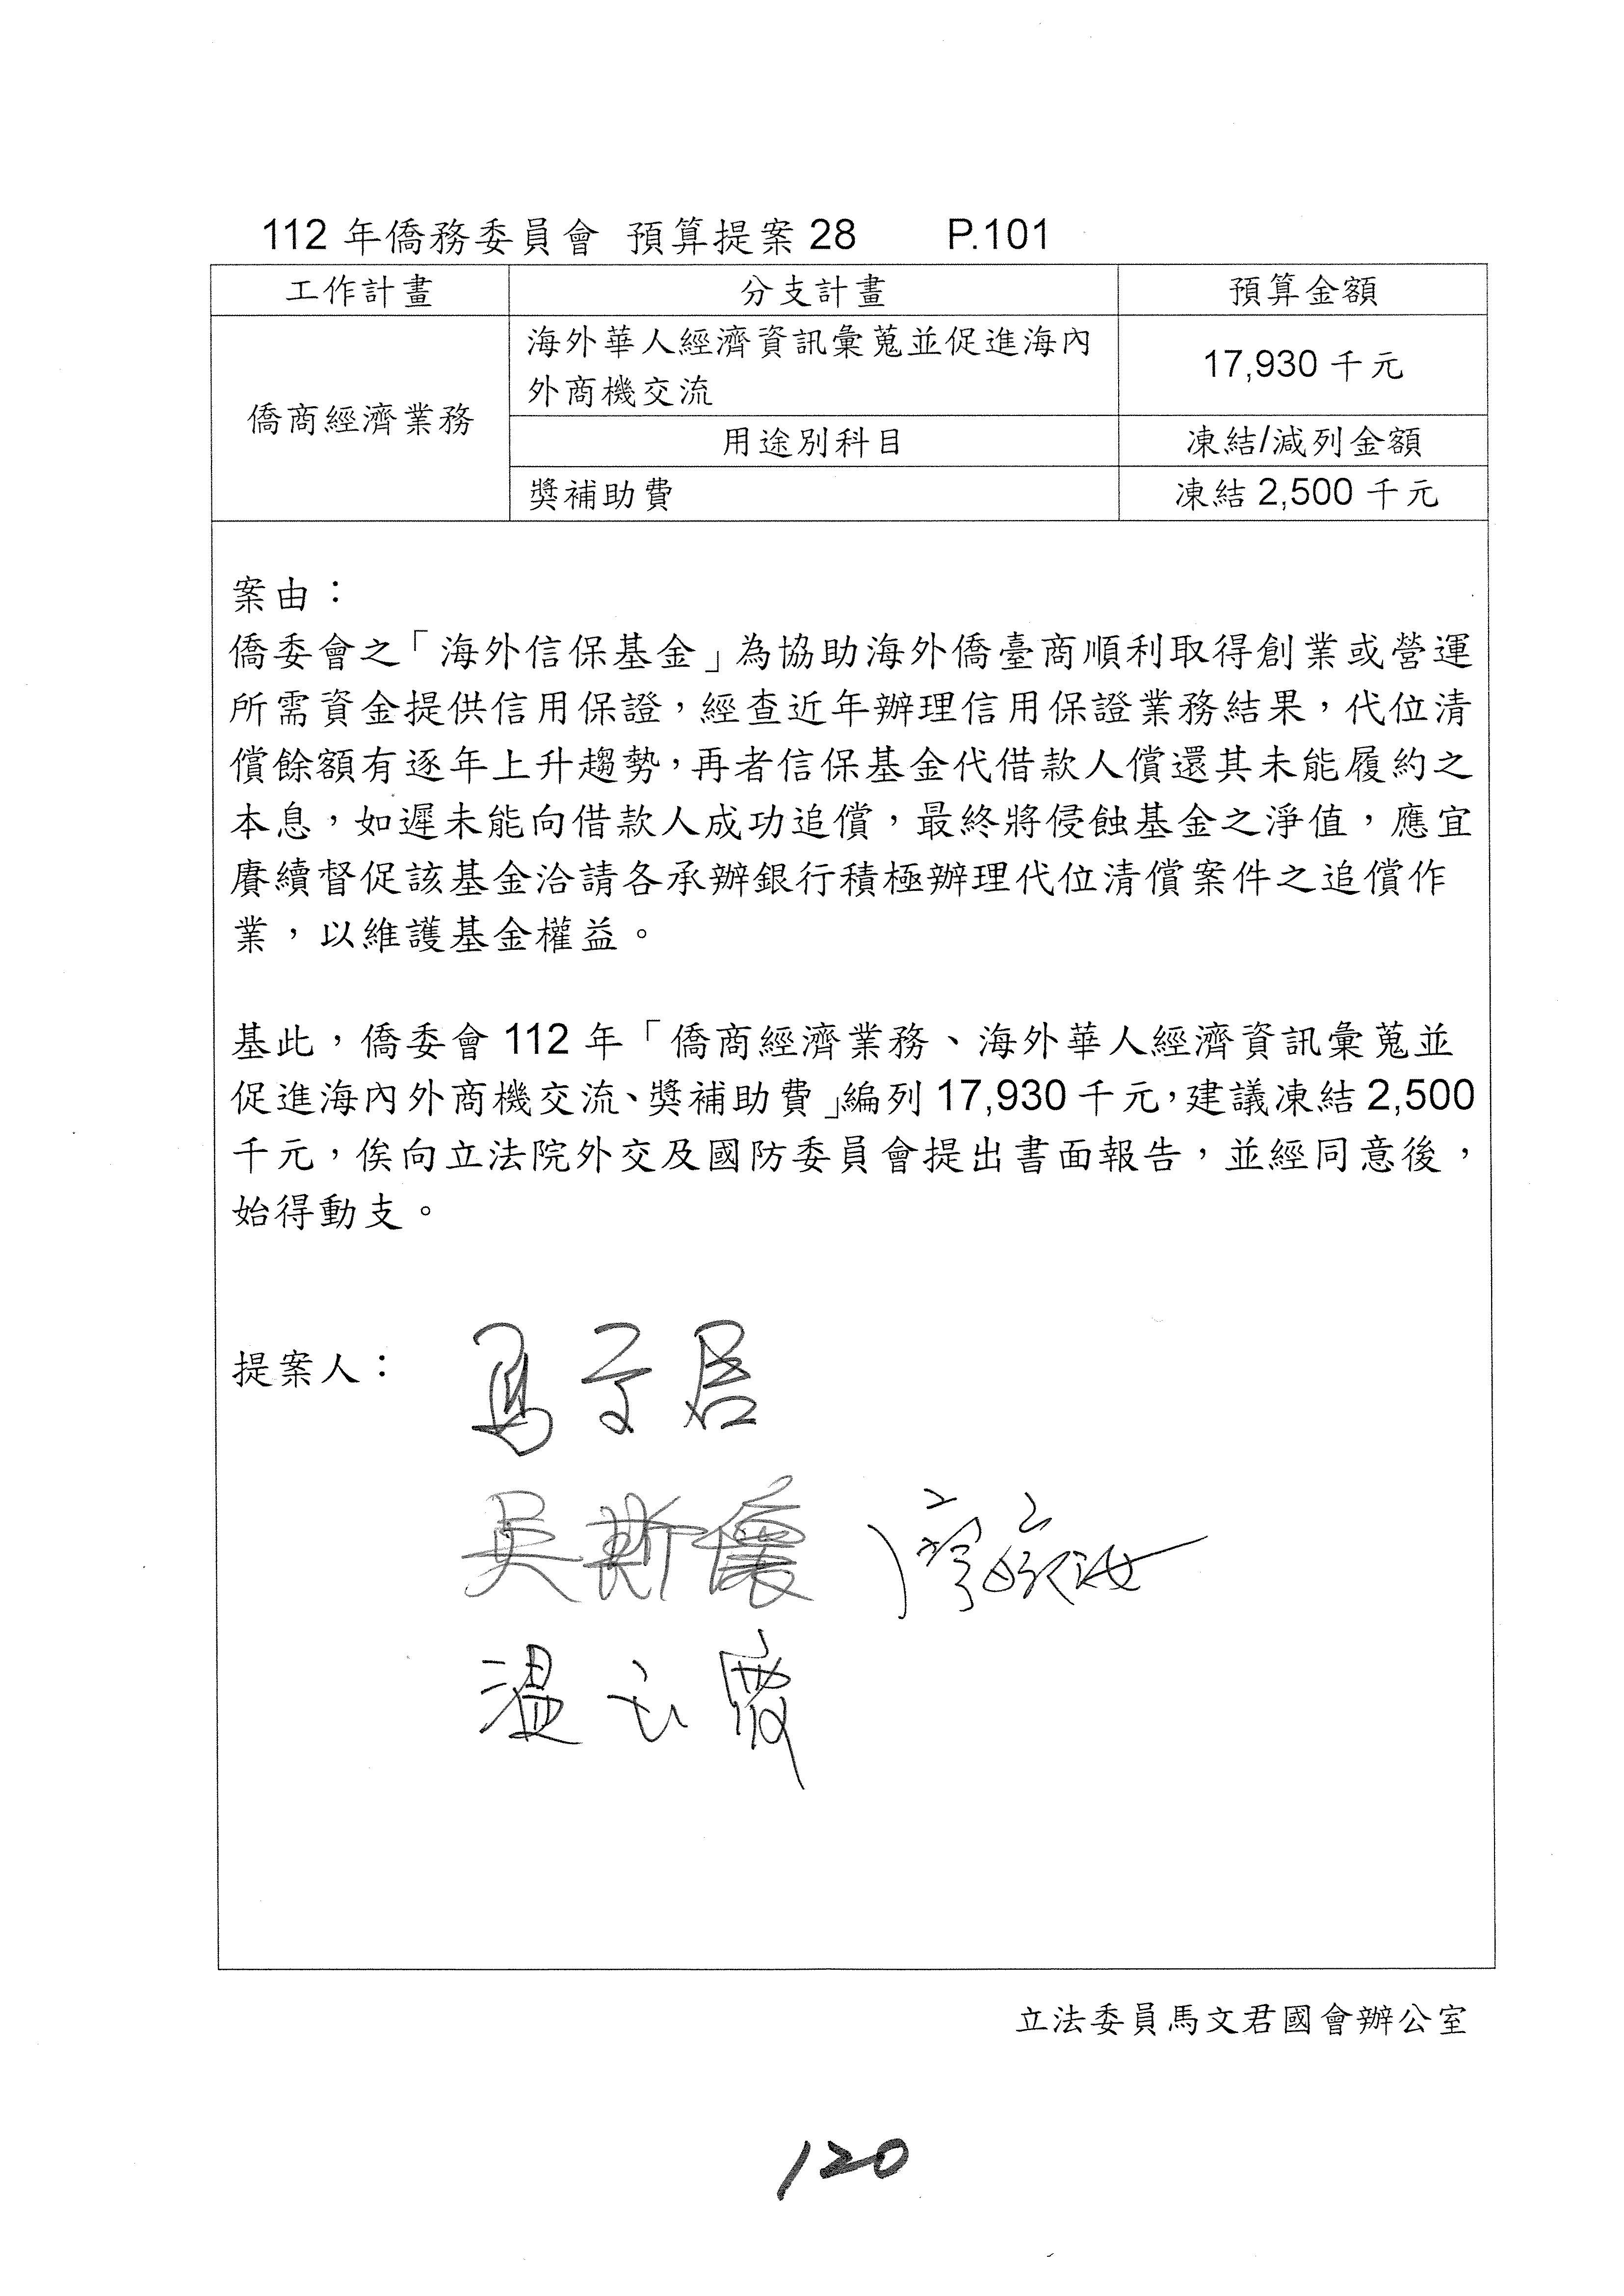 112 年僑務委員會 預算提案 28 P.101
工作計畫 分支計畫 預算金額
僑商經濟業務
海外華人經濟資訊彙蒐並促進海內
外商機交流
17,930 千元
用途別科目 凍結/減列金額
獎補助費 凍結 2,500 千元
案由：
僑委會之「海外信保基金」為協助海外僑臺商順利取得創業或營運
所需資金提供信用保證，經查近年辦理信用保證業務結果，代位清
償餘額有逐年上升趨勢，再者信保基金代借款人償還其未能履約之
本息，如遲未能向借款人成功追償，最終將侵蝕基金之淨值，應宜
賡續督促該基金洽請各承辦銀行積極辦理代位清償案件之追償作
業，以維護基金權益。
基此，僑委會 112 年「僑商經濟業務、海外華人經濟資訊彙蒐並
促進海內外商機交流、獎補助費」編列 17,930 千元，建議凍結 2,500
千元，俟向立法院外交及國防委員會提出書面報告，並經同意後，
始得動支。
提案人：
馬文君
吳斯懷 廖婉汝
溫玉霞
立法委員馬文君國會辦公室
120